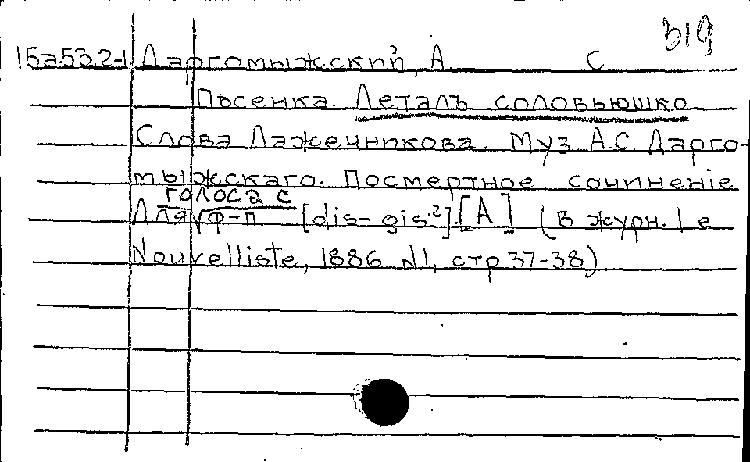 319
15a532-1 Даргомыжский, А. С
Пѣсенка. Леталъ соловьюшко.
Слова Лажечникова. Муз А.С Дарго-
мыжскаго. Посмертное сочиненіе
голоса с
Для ф-п [dis-gis²] [A] (в журн. Le
Nouvelliste, 1886 N1, стр 37-38)